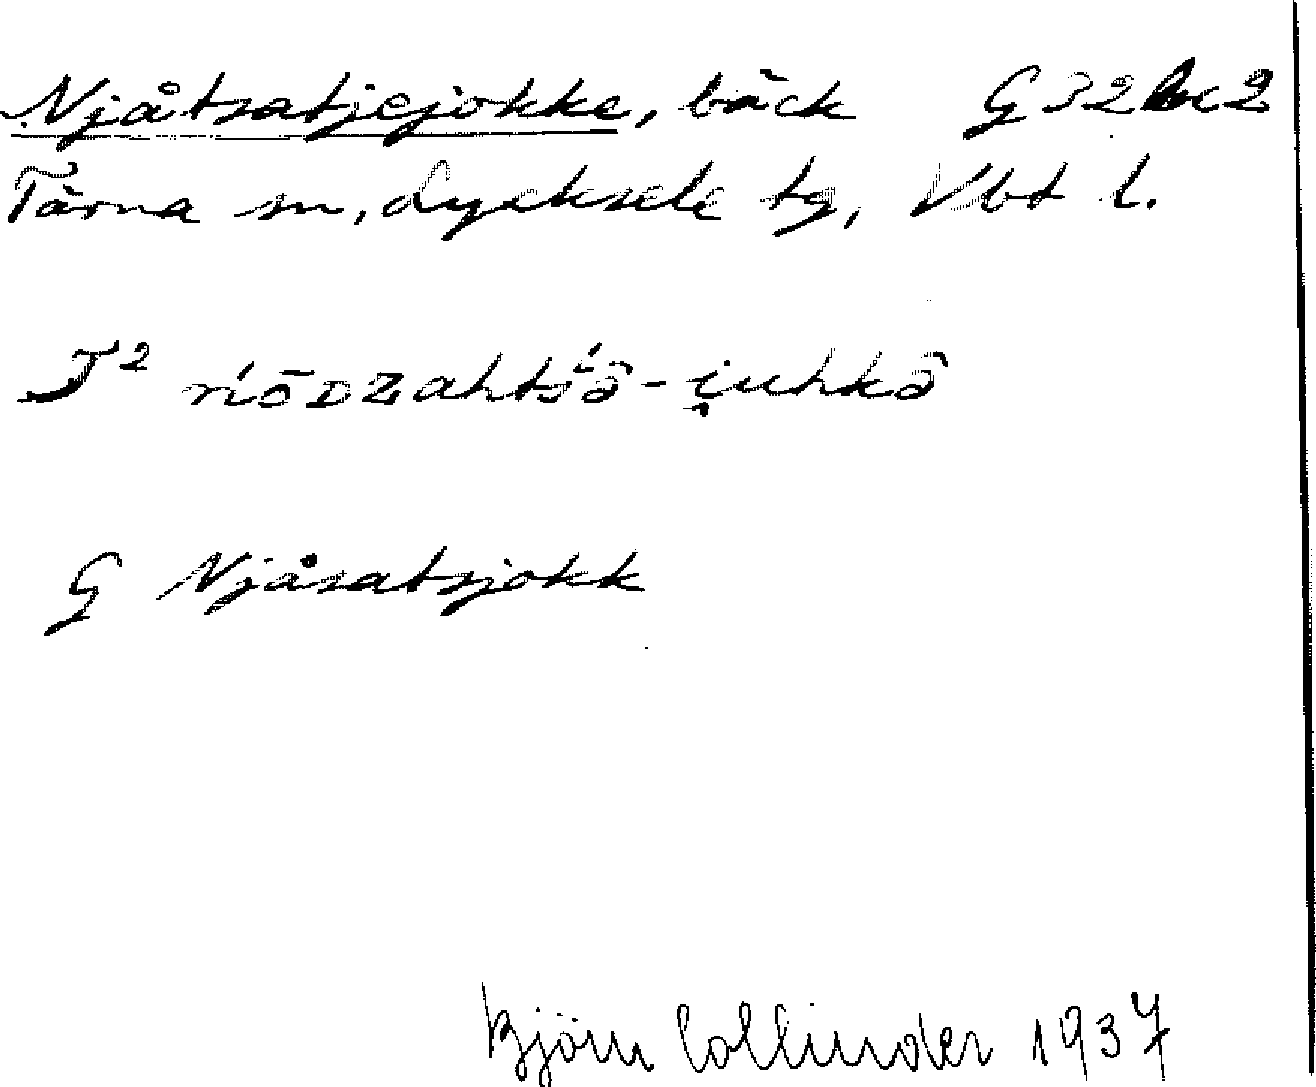 Njåtsatjejokke, bäck G 32 bc 2
Tärna sn, Lycksele tg, Vbt l.
T² ńōᴅᴢahtś́â-i̯uhkâ
G Njåsatsjokk
Björn Collinder 1937